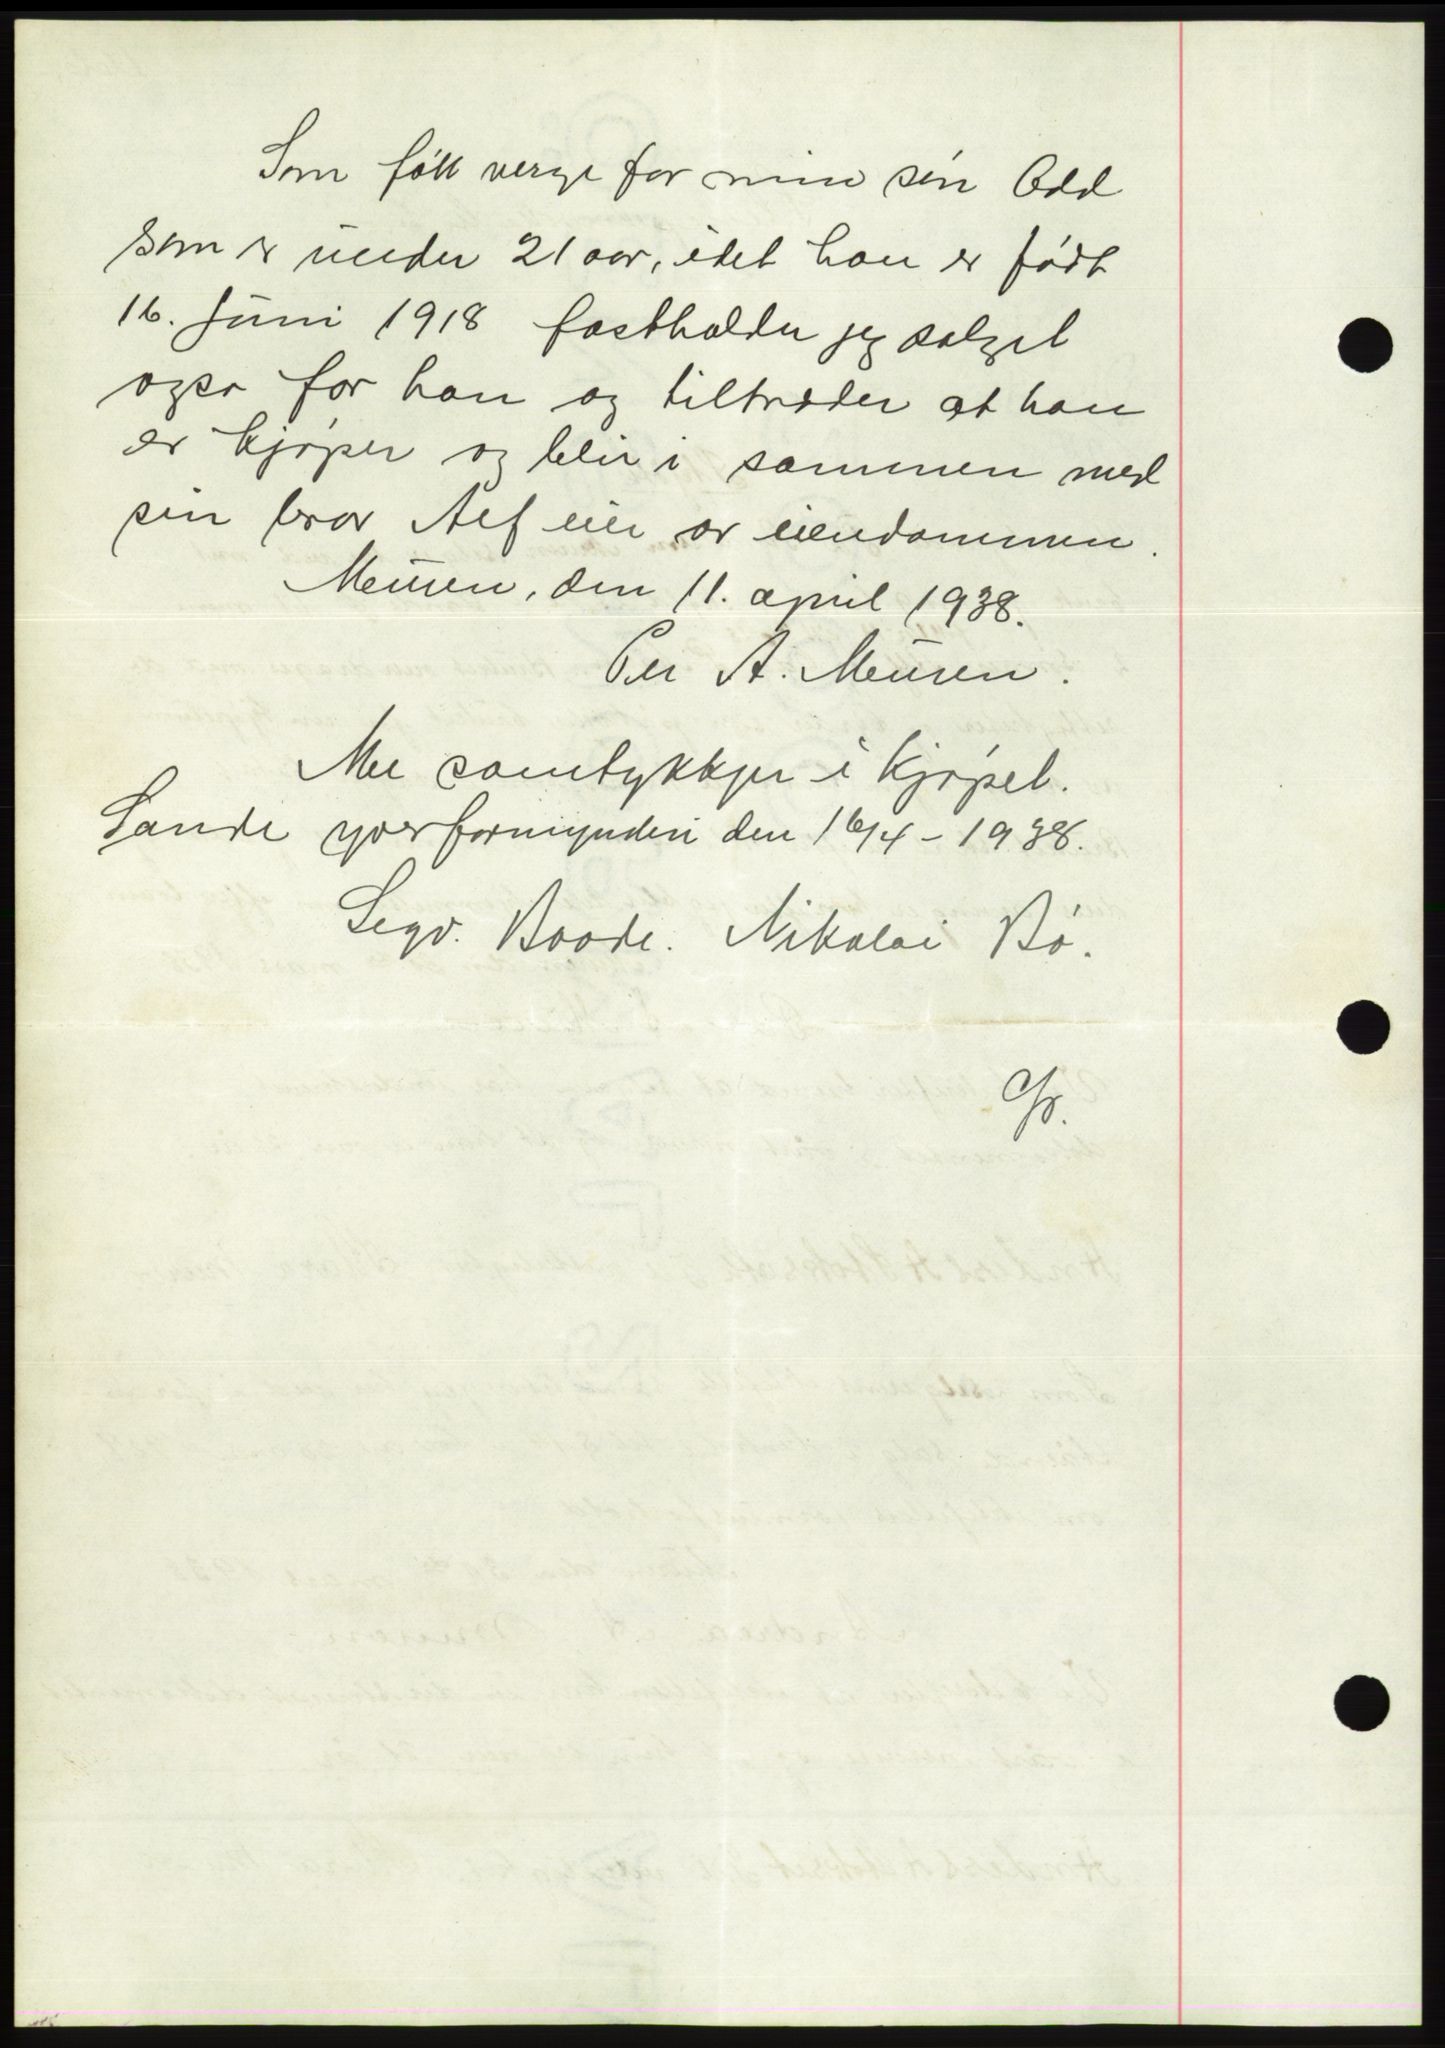 Som født verge for min søn Odd
som er under 21 aar, idet han er født
16. Juni 1918 fastholder jeg salget
ogsa for han og tiltræder at han
er kjøper og blir i sammen med
sin bror Alf eier av eiendommen.
Meuren, den 11. april 1938.
Per A. Meuren.
Me samtykkjer i kjøpet.
Sande yverformynderi den 16/4-1938.
Sigv. Baade. Nikolai Bö.